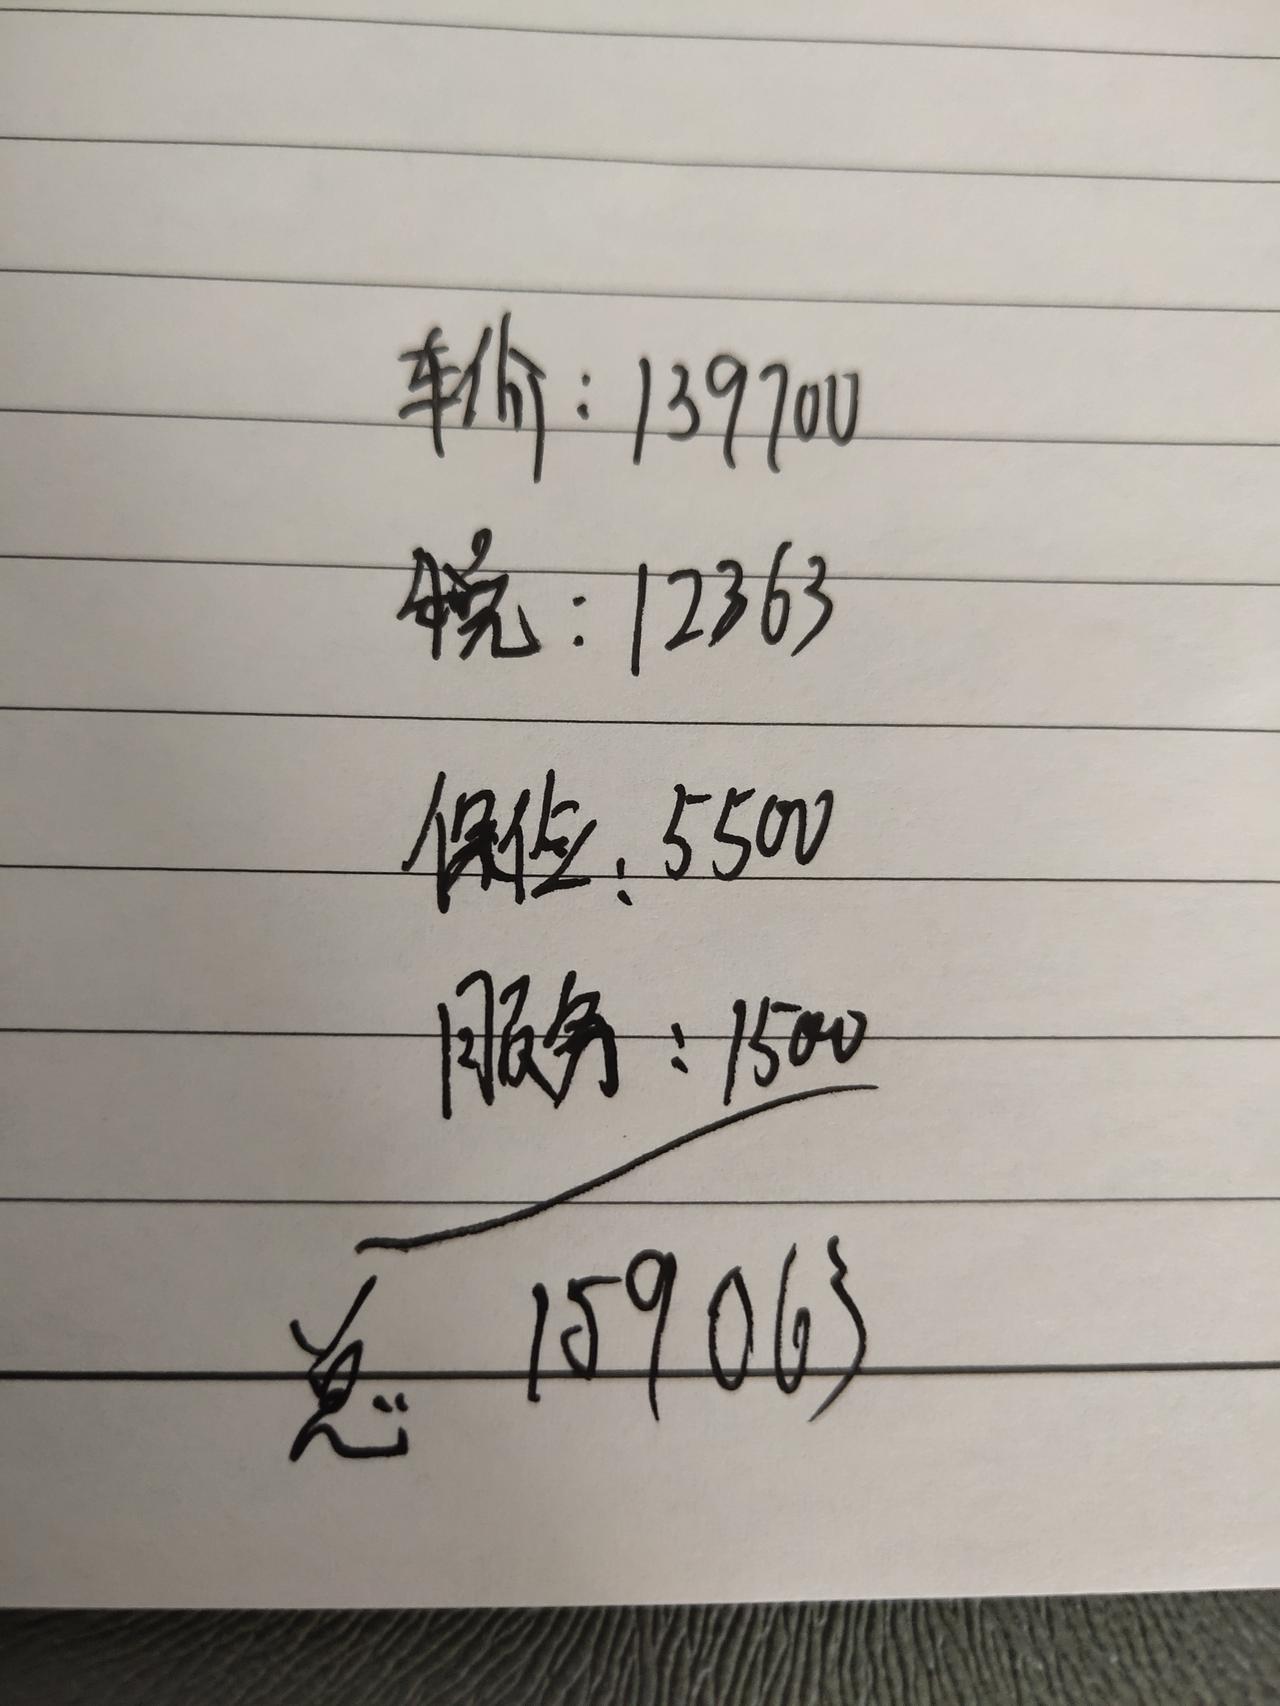 车价：139700
税：12363
保险：5500
服务：1500
总 159063